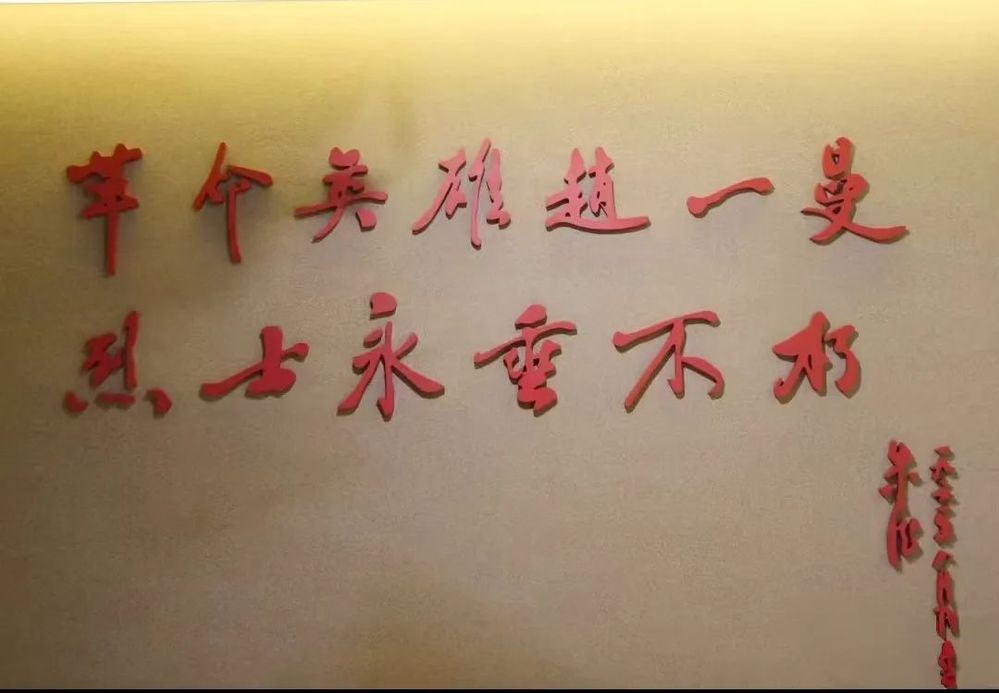 革命英雄趙一曼
烈士永垂不朽
朱德